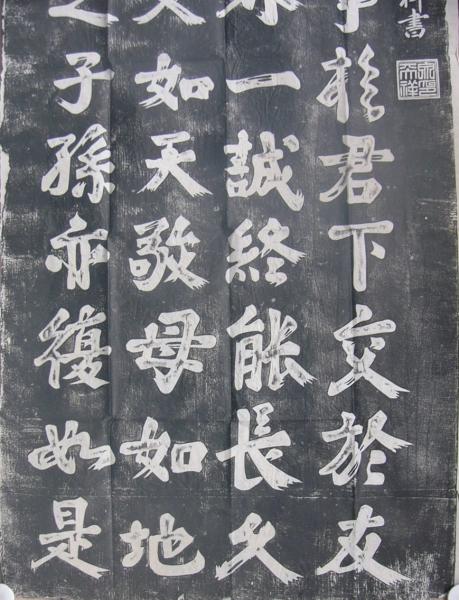 書
事於君下交於友
一誠終能長久
父如天敬母如地
之子孫亦復如是